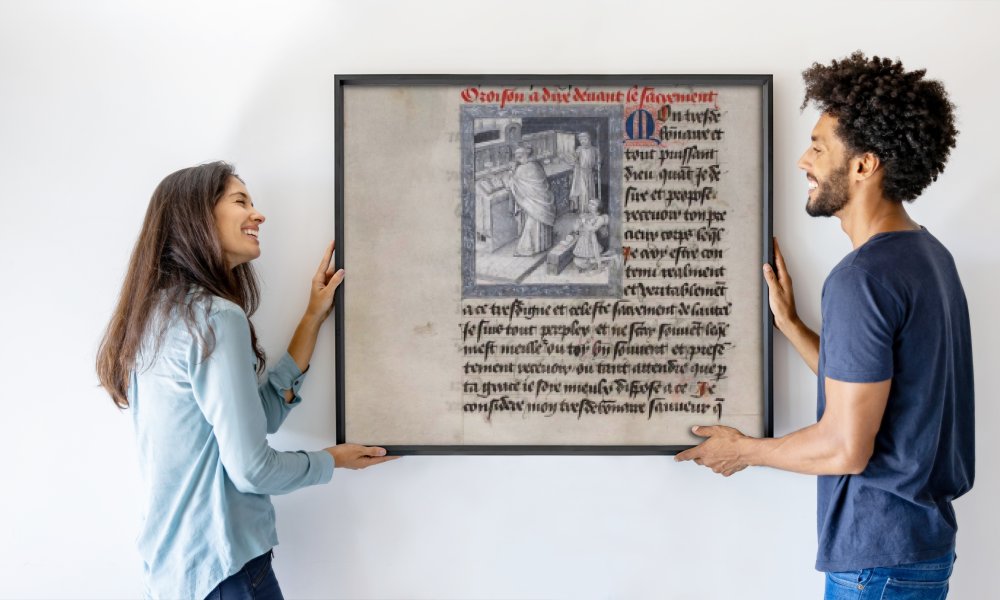 Oroison a dire deuant le sacrement
Mon tresde
bonaire et
tout puissant
dieu quant Je de
sire et propose
receuoir ton pre
cieux corps leql̄
Je croy estre con
tenu realment
et veritablemēt
a ce tresdigne et celeste sacrement de lautel
Je suis tout perplex et ne scay souuēt leql̄
mest meille᷑ ou toy bn̄ souuent et prese
tement receuoir ou tant attendre que p̄
ta grace ie soie mieulx dispose a ce Je
considere mon tresdebonaire sauueur q̄